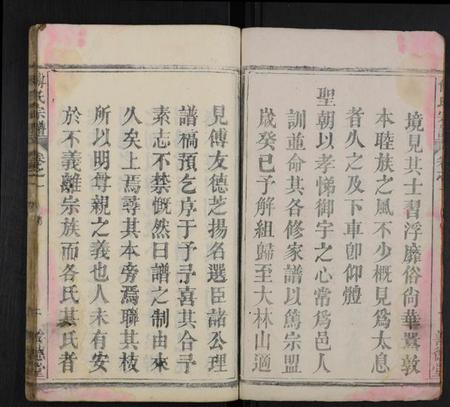 境見其士習浮靡俗尚華囂敦
本睦族之風不少概見爲太息
者久之及下車卽仰體
聖朝以孝悌御宇之心常爲邑人
訓並命其各修家譜以篤宗盟
歲癸巳予解組歸至大林山適
見傅友德芝揚名選臣諸公理
譜稿預乞序于予予喜其合予
素志不禁慨然曰譜之制由來
久矣上焉尋其本旁焉聯其枝
所以明尊親之義也人未有安
於不義離宗族而各氏其氏者
氏宗譜
卷之一